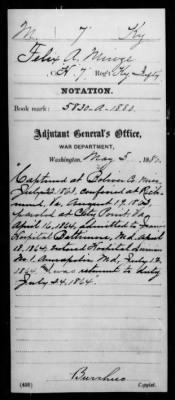 M. 7 Ky
Felix A.
Co. K, 7 Reg't Ky Inf'ty
NOTATION.
Book mark: 5830-A-1880
Adjutant General's Office,
WAR DEPARTMENT,
Washington, May 5, 188
"Captured at Bolivar B, Miss,
July 22, 1863, confined at Rich-
mond, Va. August 19, 1863,
paroled at City Point, Va,
April 16, 1864, admitted to
Hospital Baltimore, Md, April
18, 1864, entered Hospital
No. 1. Annapolis Md, July 12,
1864. & was returned to duty
July 24, 1864."
(408)
Copyist.